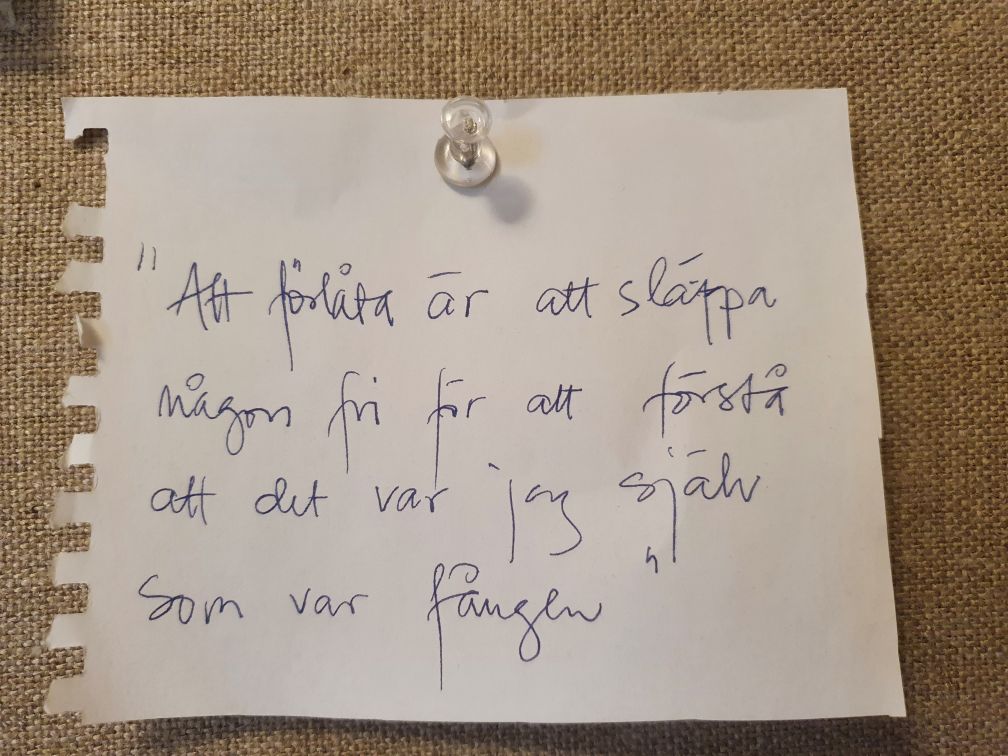 "Att förlåta är att släppa
någon fri för att förstå
att det var jag själv
som var fången"